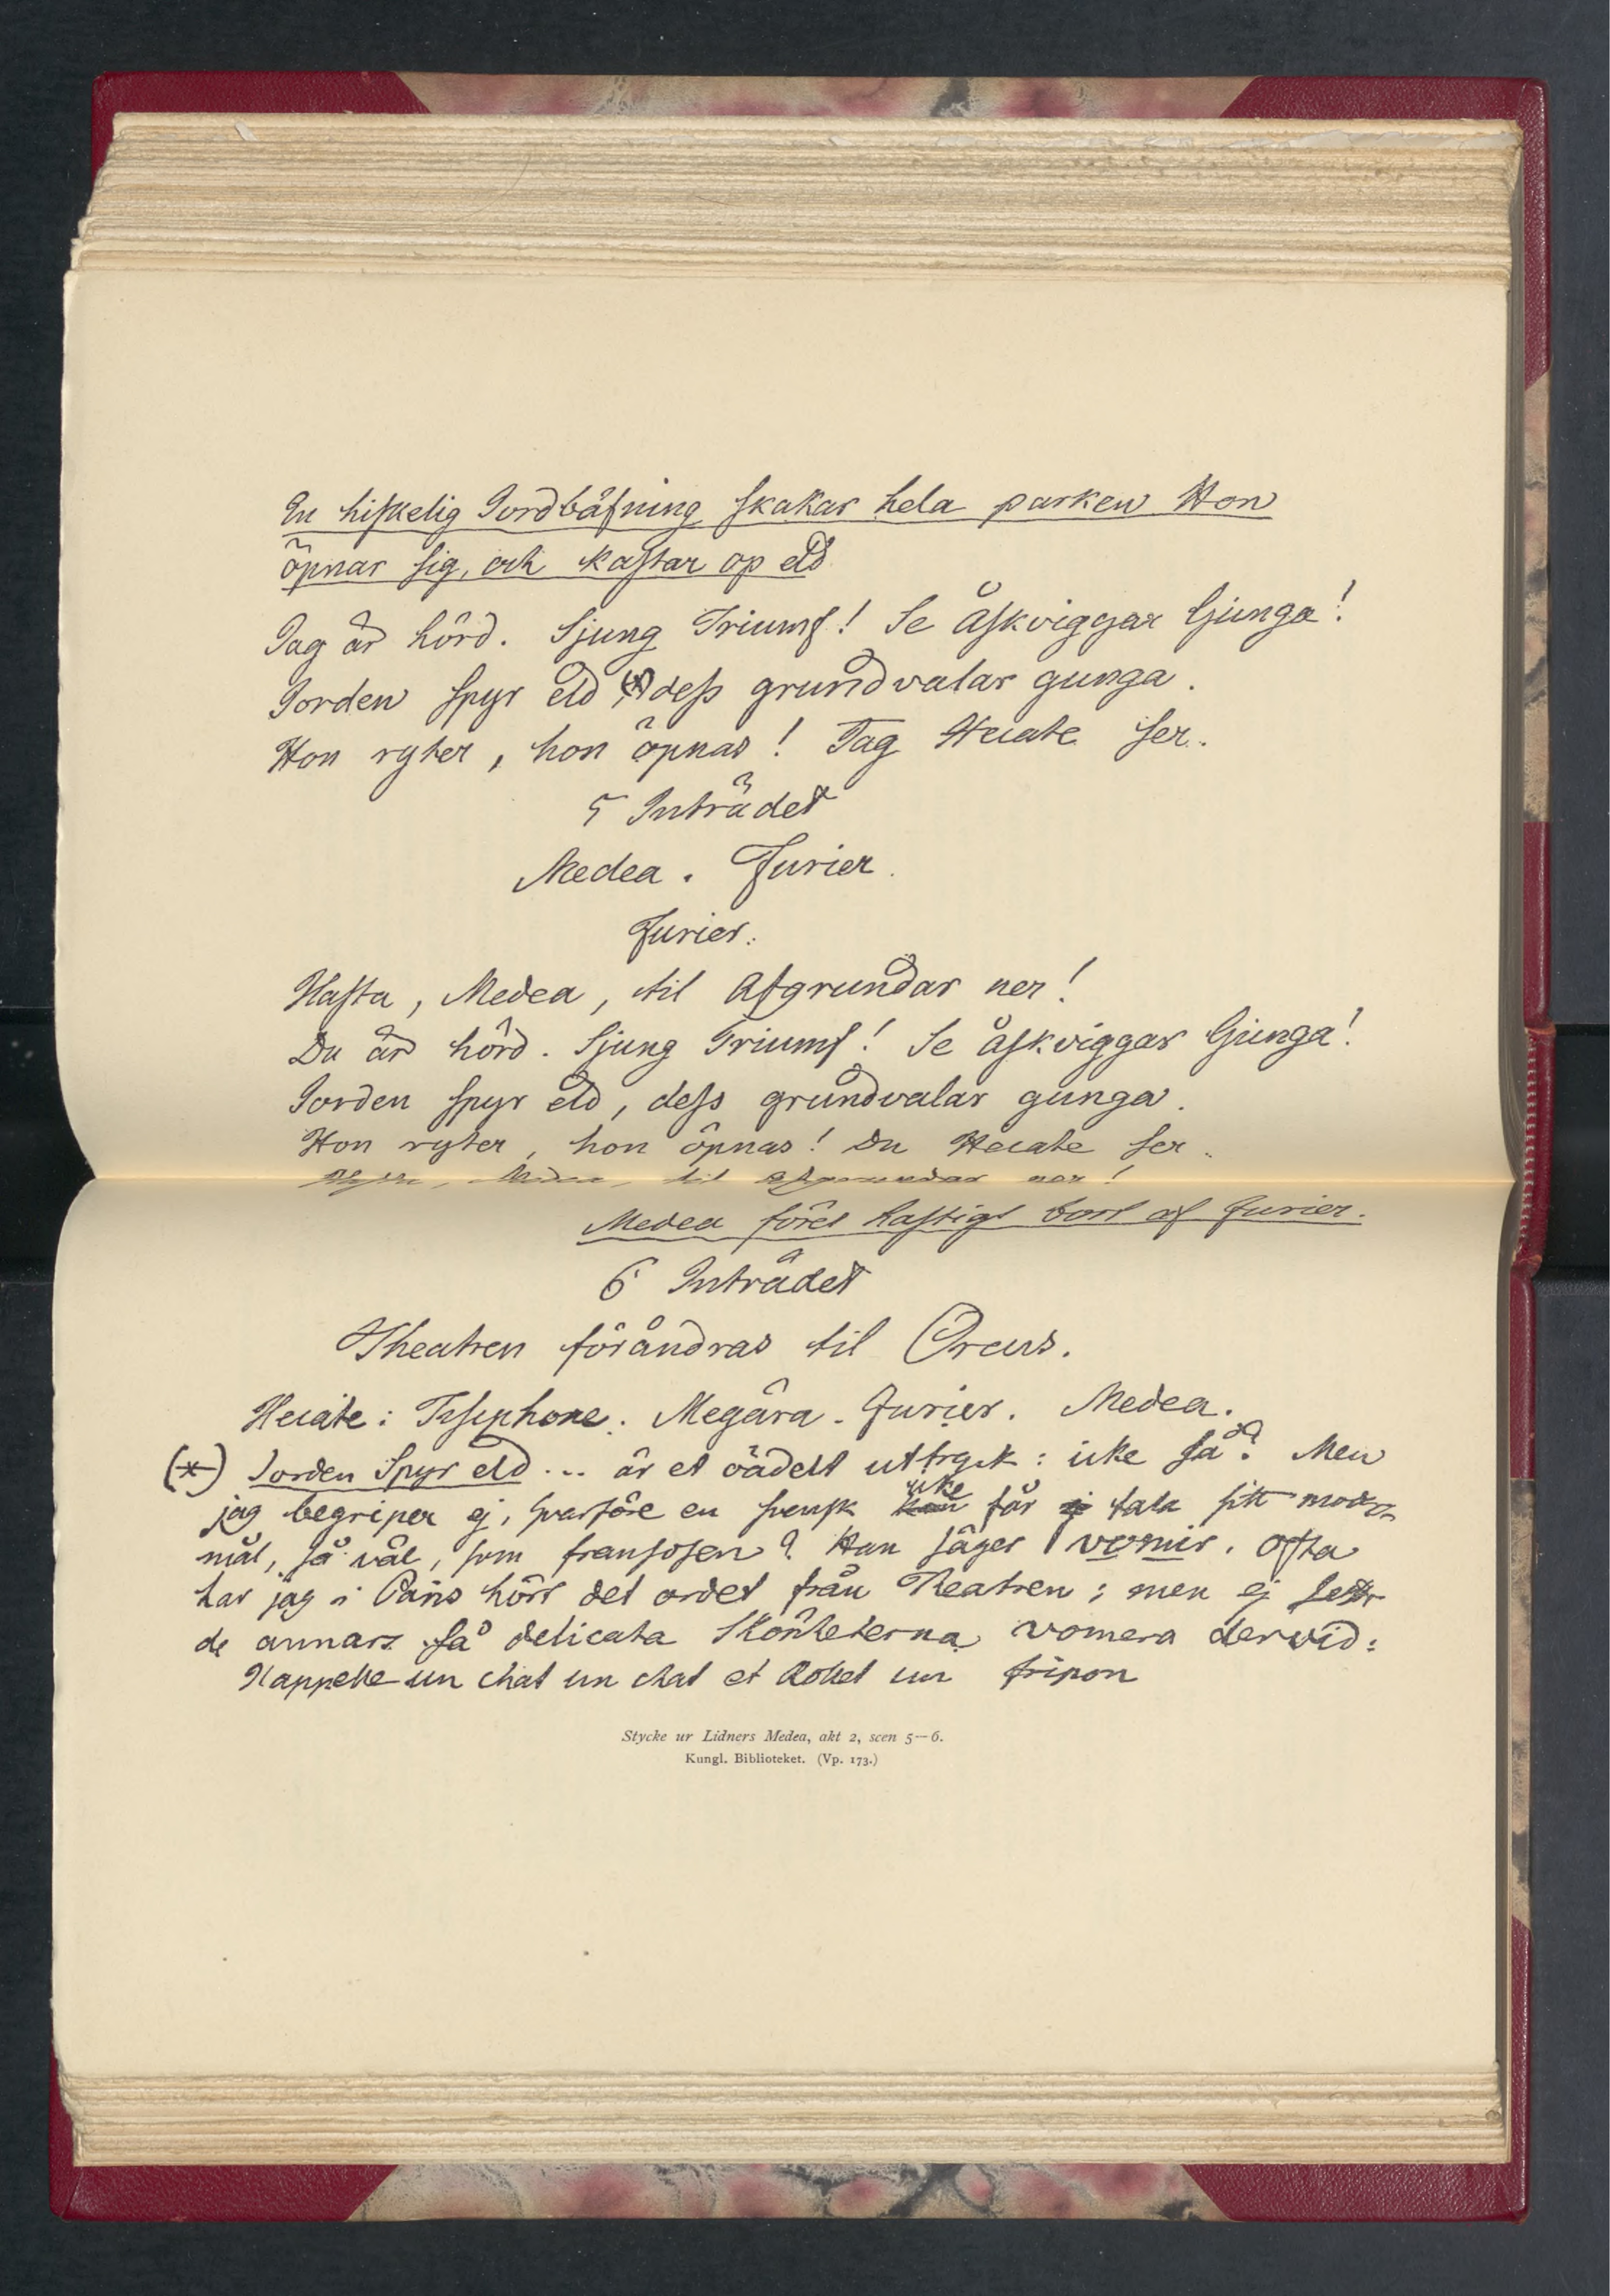 En hiskelig Jordbäfning skakar hela parken Hon
öpnar sig, och kastar op eld
Jag är hörd. Sjung Triumf! Se åskviggar ljunga!
Jorden spyr eld (*) dess grundvalar gunga.
Hon ryter, hon öpnas! Jag Hecate ser.
5 Inträdet
Medea. Furier.
Furier.
Hasta, Medea, til Afgrundar ner!
Du är hörd. Sjung Triumf! Se åskviggar ljunga!
Jorden spyr eld, dess grundvalar gunga.
Hon ryter, hon öpnas! Du Hecate ser.
Hasta, Medea, til Afgrundar ner!
Medea föres hastigt bort af Furier.
6 Inträdet
Theatren förändras til Orcus.
Hecate: Tisiphone. Megära. Furier. Medea.
(*) Jorden Spyr eld ... är et oädelt uttryck: icke så? Men
jag begriper ej, hvarföre en svensk icke får tala sitt moders
mål, så väl, som fransosen? Han säger vomir. Ofta
har jag i Paris hört det ordet från Theatren; men ej sett
de annars så delicata Skönheterna vomera dervid:
J'appelle un chat un chat et Rollet un fripon
Stycke ur Lidners Medea, akt 2, scen 5—6.
Kungl. Biblioteket. (Vp. 173.)